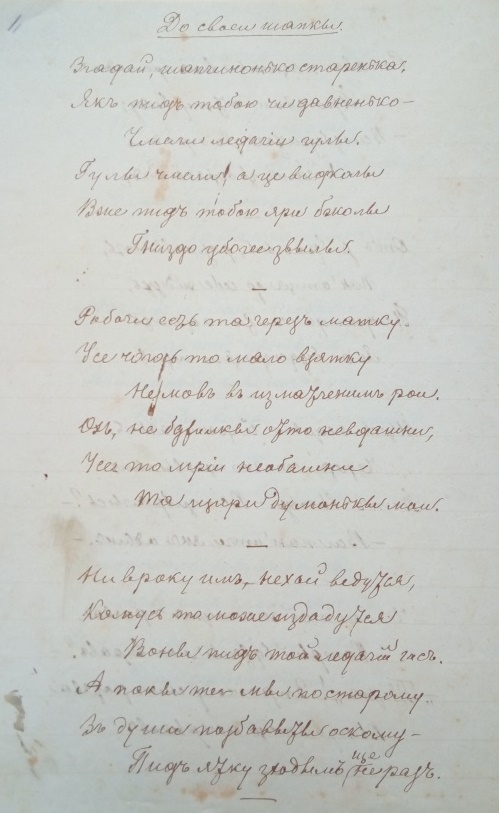 До своеи шапкы.
Згадай, шапчинонько старенька,
Якъ пидъ тобою чи давненько —
Чмели ледачіи гулы.
Гулы чмели, а це видколы
Вже пидъ тобою яри бжолы
Гниздо убогее звылы.
—
Рибочи та черезъ матку
Усе чогось то мало взятку
Немовъ въ измаченимъ рои.
Охъ, не бджилкы то невдашни,
Усе то мріи необашни
Та щари думонькы мои.
—
Ни вроку имъ, нехай ведутся,
Колысь то може издадутся
Воны пидъ той ледачій часъ.
А покы же мы по старому
Въ души
Пидъ злодіимъ ще не разъ.
—